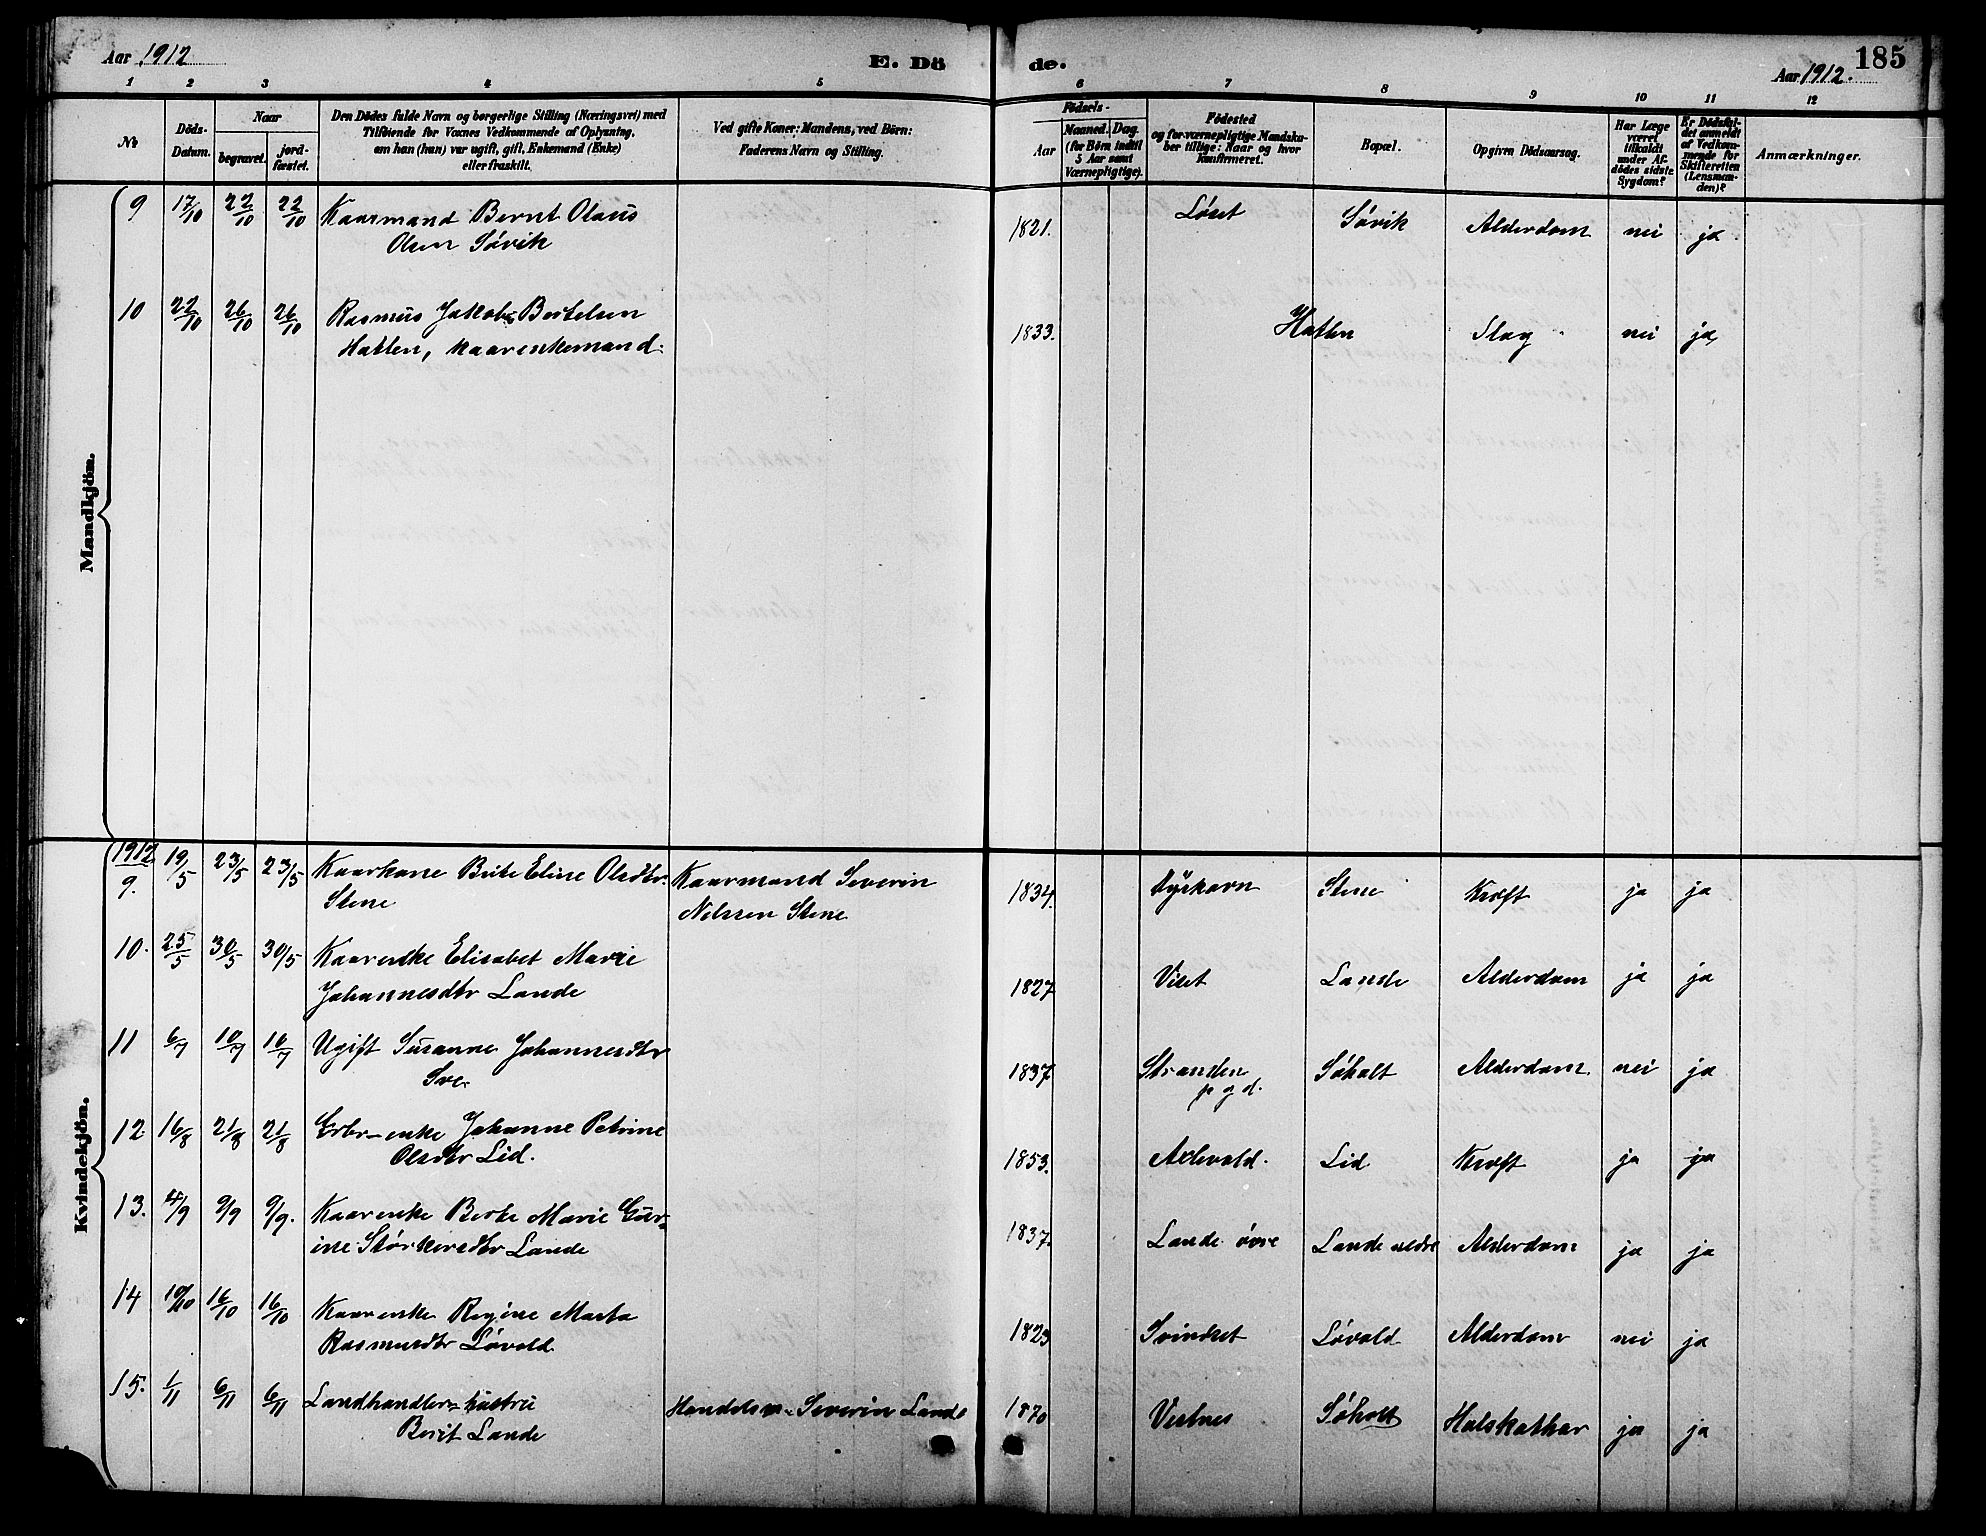 Aar 1912
E. Dö
de.
Aar 1912.
185
1 2 3 4 5 6 7 8 9 10 11 12
No
Döds-Datum.
Naar
begravet.
jord-fæstet.
Den Dödes fulde Navn og borgerlige Stilling (Næringsvei) med
Tilföiende for Voxnes Vedkommende af Oplysning,
om han (hun) var ugift, gift, Enkemand (Enke)
eller fraskilt.
Ved gifte Koner: Mandens, ved Börn:
Faderens Navn og Stilling.
Födsels-
Aar
Maaned. Dag.
(for Börn indtil
5 Aar samt
Værnepligtige).
Födested
og for værnepligtige Mandska-
ber tillige: Naar og hvor
konfirmeret.
Bopæl.
Opgiven Dödsaarsag.
Har Læge
været
tilkaldt
under Af-
dödes sidste
Sygdom?
Er Dödsfal-
det anmeldt
af Vedkom-
mende for
Skifteretten
(Lensman-
den)?
Anmærkninger.
Mandkjön.
9 17/10 22/10 22/10 Kaarmand Bernt Olaus
Olsen Søvik
1821. Løset Søvik Alderdom nei ja
10 22/10 26/10 26/10 Rasmus Jakob Bertelsen
Hatlen, kaarenkemand.
1833. Hatlen Slag nei ja
Kvindekjön.
1912
9. 19/5 23/5 23/5 Kaarkone Brite Eline Olsdtr. Kaarmand Severin
Stene Nilssen Stene
1834. Stene Kræft ja ja
10. 25/5 30/5 30/5 Kaarenke Elisabet Marie
Johannesdtr Lande
1827 Viset Lande Alderdom ja ja
11 6/7 10/7 10/7 Ugift Susanne Johannesdtr
1837 Stranden Søholt Alderdom nei ja
p g d.
12 16/8 21/8 21/8 Grbr-enke Johanne Petrine
Olsdtr Lid.
1853. Lid Kræft ja ja
13. 4/9 9/9 9/9. Kaarenke Berte Marie Gur-
ine Størkersdtr Lande
1837. Lande øvre Lande nedre Alderdom ja ja
14 10/10 16/10 16/10 Kaarenke Regine Marta
Rasmusdtr Løvold
1823 Svindset Løvold Alderdom nei ja
15. 1/11 6/11 6/11 Landhandler-hustru Handelsm. Severin Lande
Berit Lande
1870 Vestnes Søholt ja ja